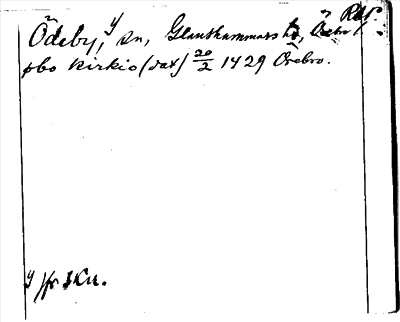 Rap.
Ödeby, y sn, Glanshammars hd, Örebro
øbo kirkio (dat) 20/2 1429 Örebro.
y jfr SKu.